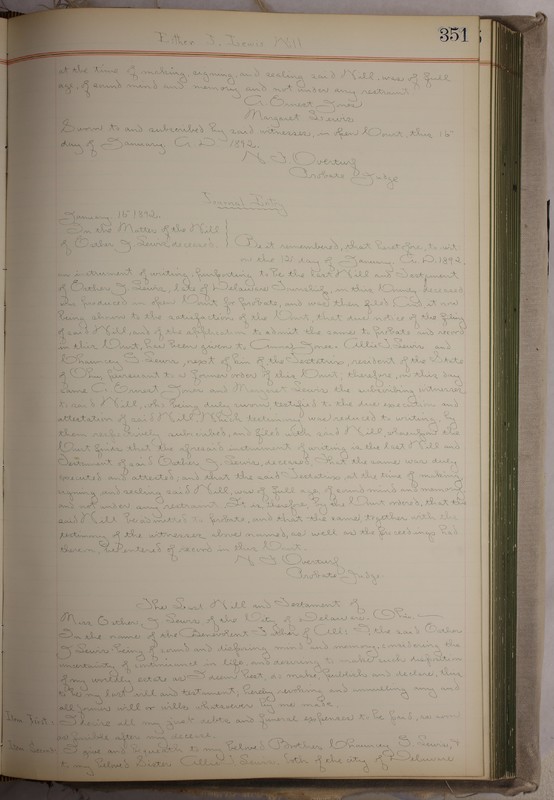 351
Esther J. Lewis Will
at the time of making, signing and sealing said Will, was of full
age, of sound mind and memory and not under any restraint.
C. Ernest Jones
Margaret Lewis
Sworn to and subscribed by said witnesses, in open Court, this 15
day of January A. D. 1892.
N. F. Overturf
Probate Judge
January 15 1892.
In the Matter of the Will
of Esther J. Lewis, deceased. Be it remembered, that heretofore, to wit
on the day of January A. D. 1892
an instrument of writing, purporting to be the last Will and Testament
of Esther J. Lewis, late of Delaware Township, in this County deceased
was produced in open Court for probate, and was then filed and it now
being shown to the satisfaction of the Court, that due notice of the filing
of said Will, and of the application to admit the same to probate and record
in this Court, has been given to Lewis and
Chauncey S. Lewis, next of kin of the Testatrix, resident of the State
of Ohio pursuant to a former order of this Court; therefore, on this day
came C. Ernest Jones and Margaret Lewis the subscribing witnesses
to said Will, who being duly sworn testified to the due execution and
attestation of said Will, Which testimony was reduced to writing, by
them respectively subscribed, and filed with said Will, whereupon the
Court finds that the aforesaid instrument of writing is the last Will and
Testament of said Esther J. Lewis, deceased, that the same was duly
executed and attested, and that the said Testatrix at the time of making
signing and sealing said Will, was of full age, of sound mind and memory
and not under any restraint. It is therefore, by the Court ordered, that the
said Will be admitted to probate, and that the same, together with the
testimony of the witnesses above named, as well as the proceedings had
therein, be entered of record in this Court.
N. F. Overturf
Probate Judge.
The Last Will and Testament of
Miss Esther J. Lewis of the City of Delaware, Ohio
In the name of the Benevolent Father of All: I the said Esther
J. Lewis being of sound and disposing mind and memory, considering the
uncertainty of continuance in life, and desiring to make such disposition
of my worldly estate as I deem best, do make, publish and declare, this
to be my last will and testament, hereby revoking and annulling any and
all former will or wills whatsoever by me made.
Item First: I desire all my just debts and funeral expenses to be paid, as soon
as possible after my decease.
Item Second: I give and bequeath to my beloved Brother Chauncey S. Lewis, &
to my beloved Sister Lewis, both of the city of Delaware